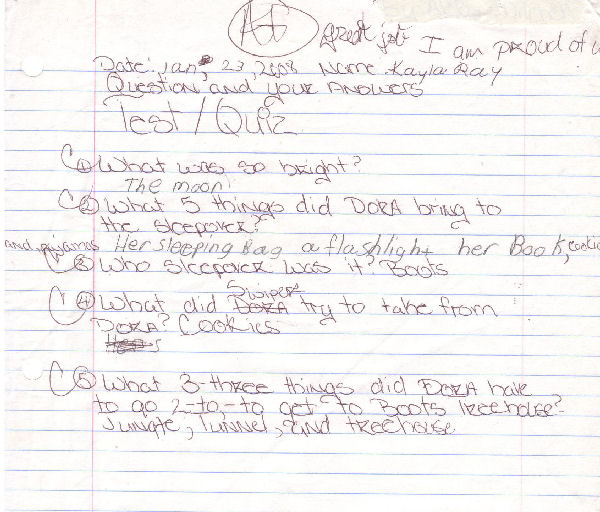 A+ great job I am proud of
Date: Jan, 23, 2008 Name Kayla Ray
Question and your Answers
Test/Quiz
C 1 What was so bright?
The moon
C 2 What 5 things did DORA bring to
the sleepover?
and pijamas Her sleeping Bag a flashlight her Book, cookie
C 3 Who sleepover was it? Boots
Swiper
C 4 What did DORA try to take from
DORA? Cookies
C 5 What 3-three things did DORA have
to go 2-to,-to get-to Boots Treehouse?
Jungle, Tunnel, and treehouse